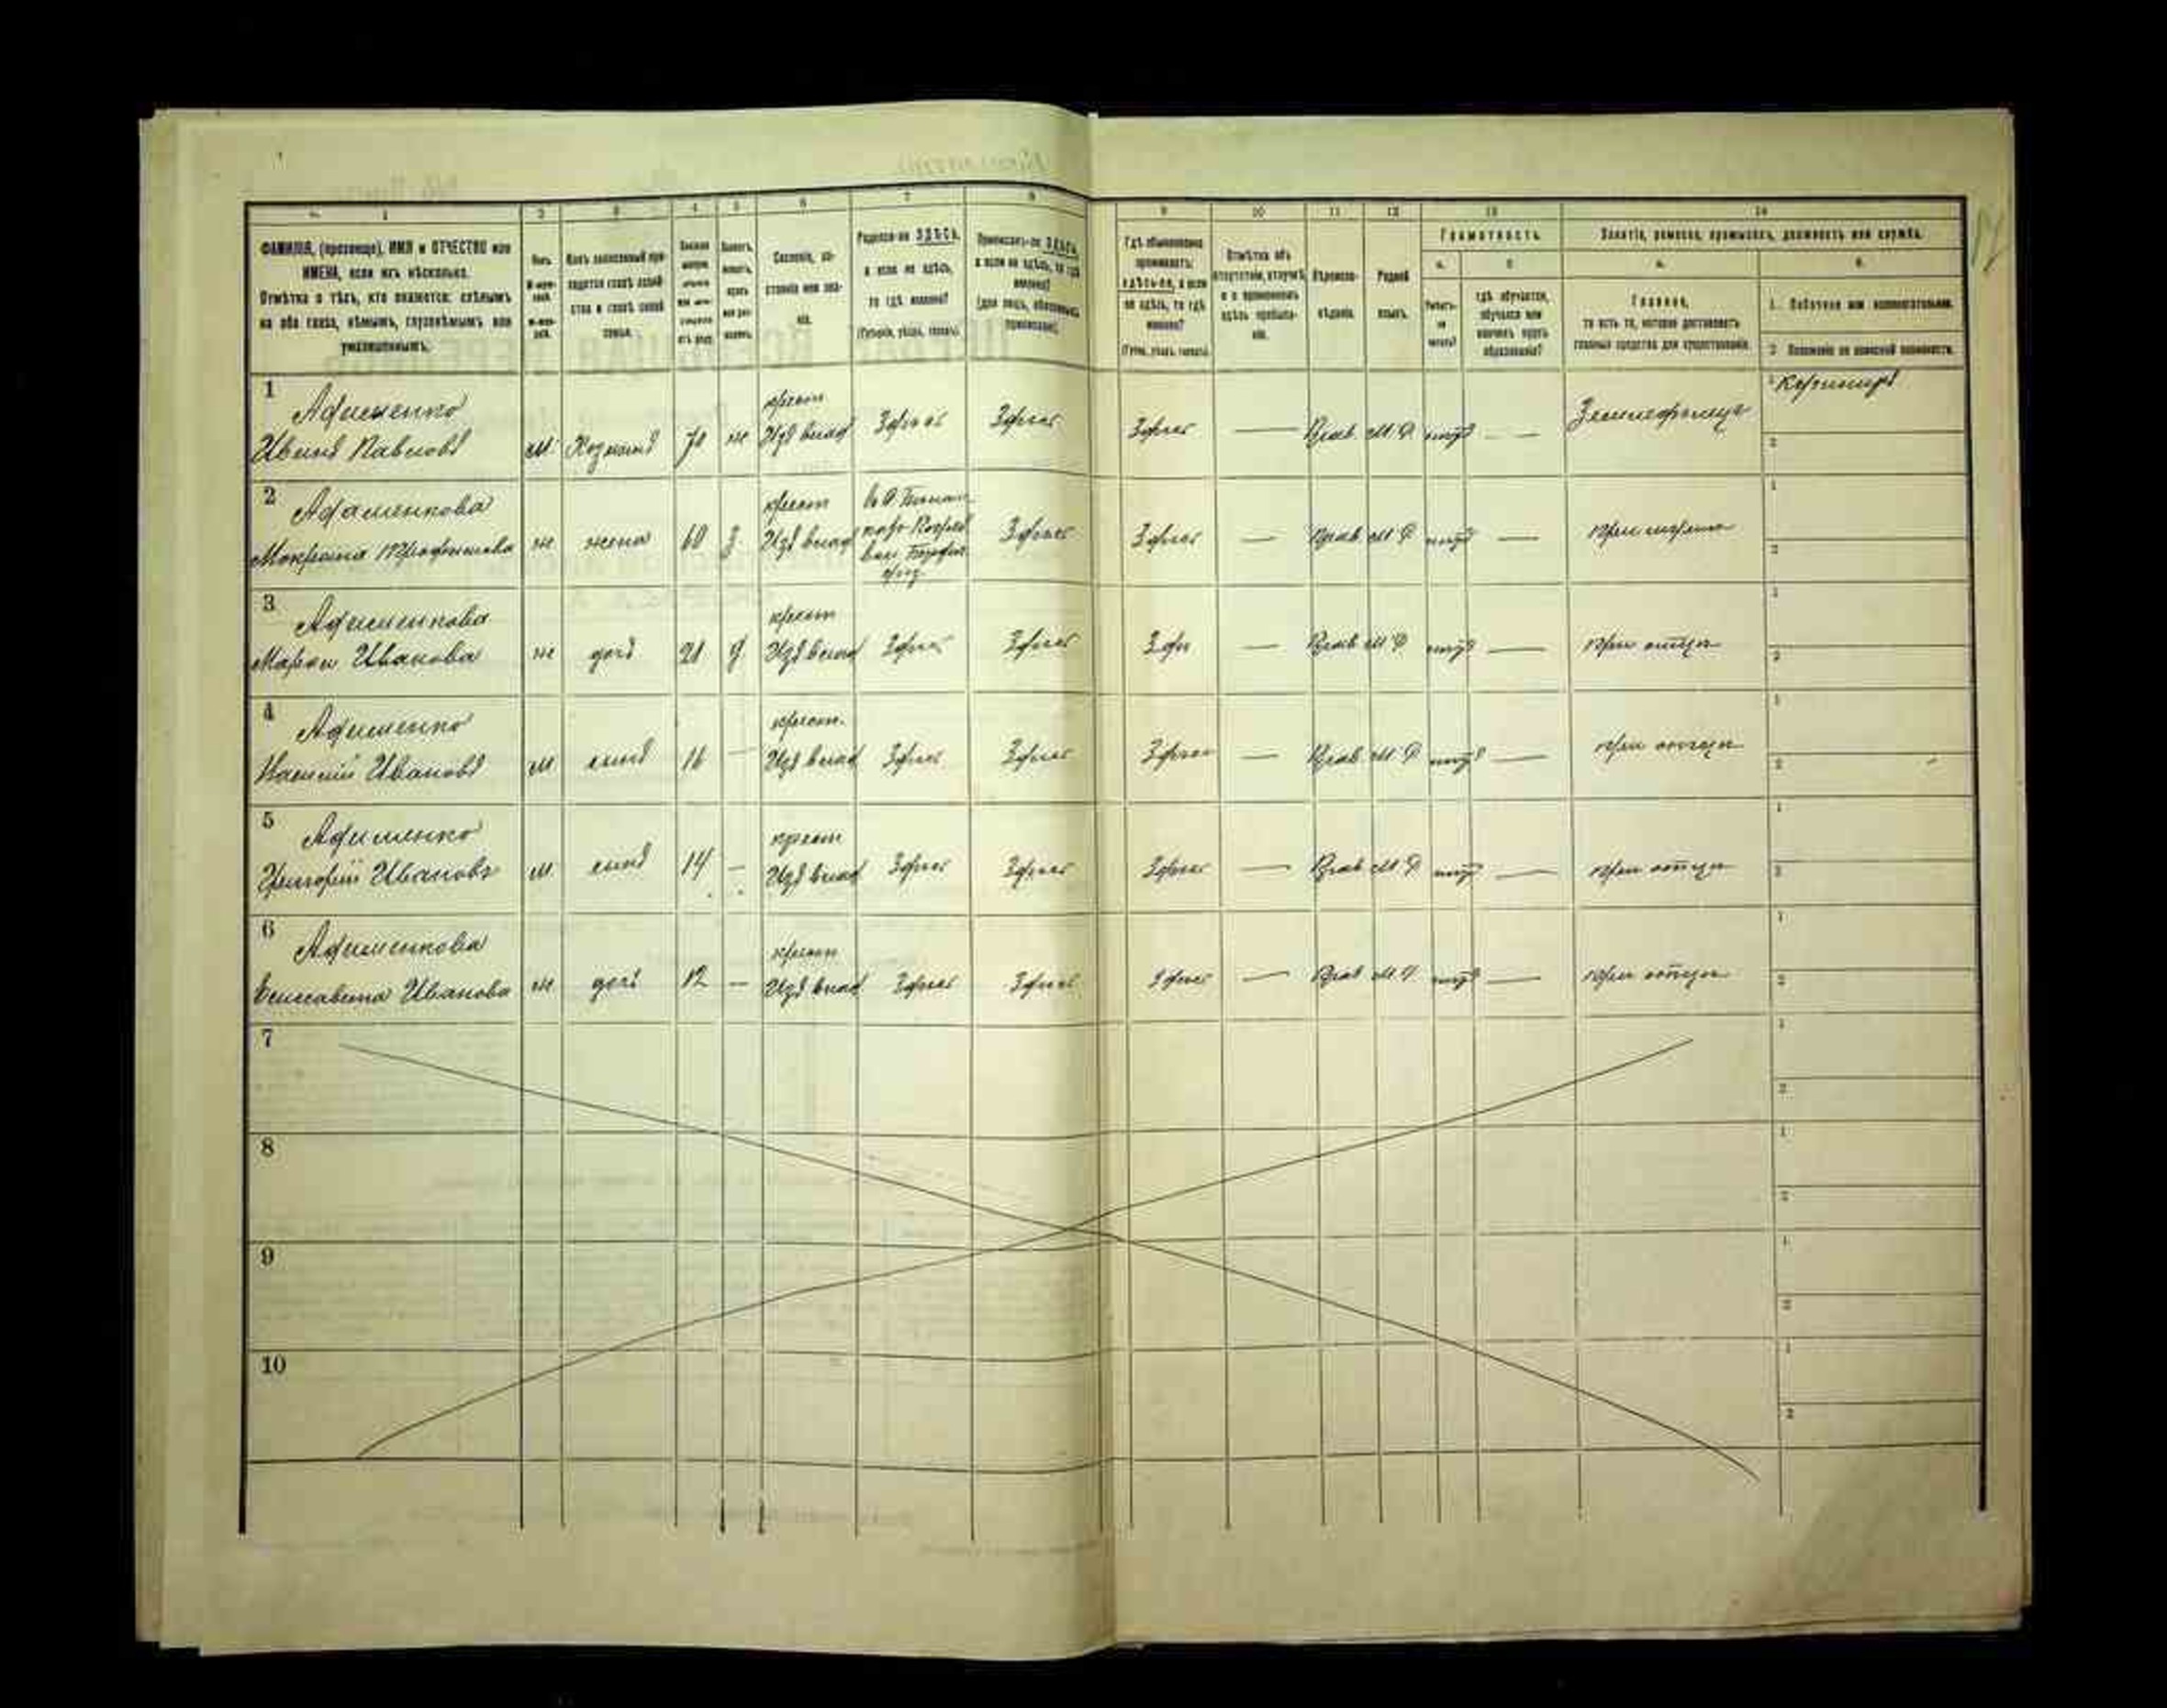 1 2 3 4 5 6 7 8 9 10 11 12 13 14
ФАМИЛІЯ, (прозвище), ИМЯ и ОТЧЕСТВО или
ИМЕНА, если ихъ нѣсколько.
Отмѣтка о тѣхъ, кто окажется: слѣпымъ
на оба глаза, нѣмымъ, глухонѣмымъ или
умалишеннымъ.
Полъ.
Какъ записанный при-
ходится главѣ хозяй-
ства и главѣ своей
семьи.
Сословіе, со-
стояніе или зва-
ніе.
Родился-ли ЗДѢСЬ,
а если не здѣсь,
то гдѣ именно?
(Губернія, уѣздъ, городъ).
Приписанъ-ли ЗДѢСЬ,
а если не здѣсь, то гдѣ
именно?
(для лицъ, обязанныхъ
припиской).
Гдѣ обыкновенно
проживаетъ:
здѣсь-ли, а если
не здѣсь, то гдѣ
именно?
(Губ., уѣздъ, городъ).
Отмѣтка объ
отсутствіи, отлучкѣ
и о временномъ
здѣсь пребыва-
ніи.
Вѣроиспо-
вѣданіе.
Родной
языкъ.
Грамотность.
а. б.
Умѣетъ-
ли
читать?
гдѣ обучается,
обучался или
кончилъ курсъ
образованія?
Занятіе, ремесло, промыселъ, должность или служба.
а. б.
Главное,
то есть то, которое доставляетъ
главныя средства для существованія.
1. Побочное или вспомогательное.
2 Положеніе по воинской повинности.
1 Адаменко
Иванъ Павловъ м Хозяинъ 70 ж крест Изъ влад Здѣсь Здѣсь Здѣсь — Прав. М. Р. нѣтъ — Земледѣлецъ 1 2
2 Адаменкова
Жена 60 з крест Изъ влад Здѣсь Здѣсь — Прав М Р нѣтъ — при мужѣ 1 2
3 Адаменкова
Марья Иванова ж дочь 21 д крест Изъ влад Здѣсь Здѣсь Здѣ — Прав М Р нѣтъ — при отцѣ 1 2
4 Адаменко
Иванов м сынъ 16 — крест. Изъ влад Здѣсь Здѣсь Здѣсь — Прав. М. Р нѣтъ — при отцѣ 1 2
5 Адаменко
Григорій Ивановъ м сынъ 14 — крест Изъ влад Здѣсь Здѣсь Здѣсь — Прав М Р нѣтъ — при отцѣ 1 2
6 Адаменкова
Елисавета Иванова ж дочь 12 — крест Изъ влад Здѣсь Здѣсь Здѣсь — Прав М. Р. нѣтъ — при отцѣ 1 2
7 1 2
8 1 2
9 1 2
10 1 2